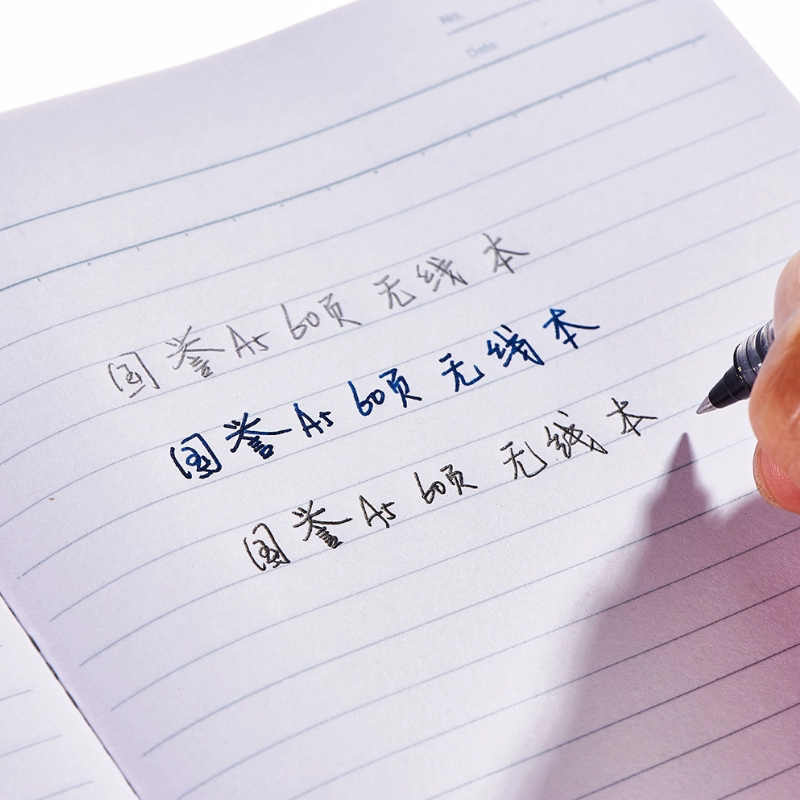 No.
Date
国誉A5 60页 无线 本
国誉A5 60页 无线本
国誉A5 60页 无线本